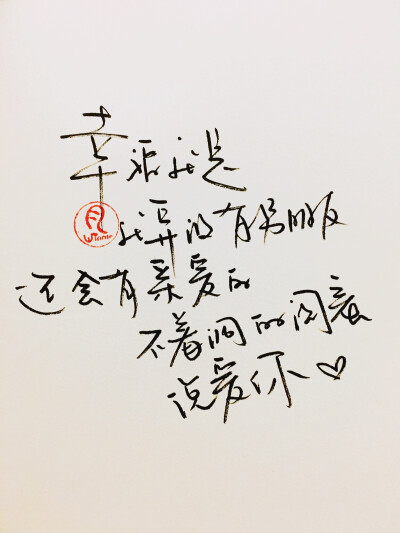 幸福就是
就算没有男朋友
还会有亲爱的
不着调的闺蜜
说爱你♡